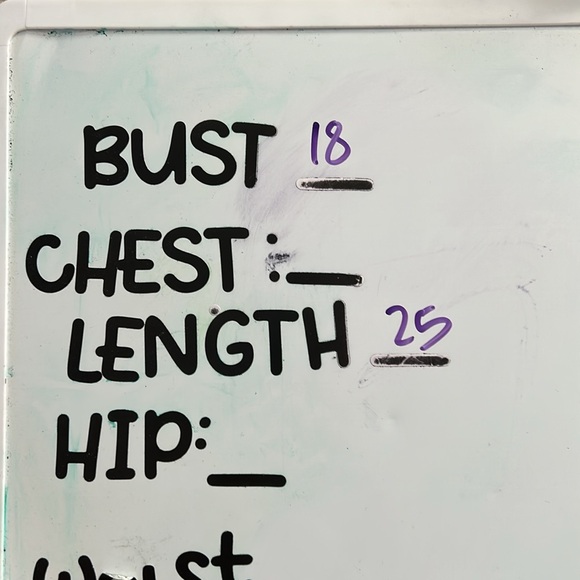 BUST 18
CHEST:_
LENGTH 25
HIP:_